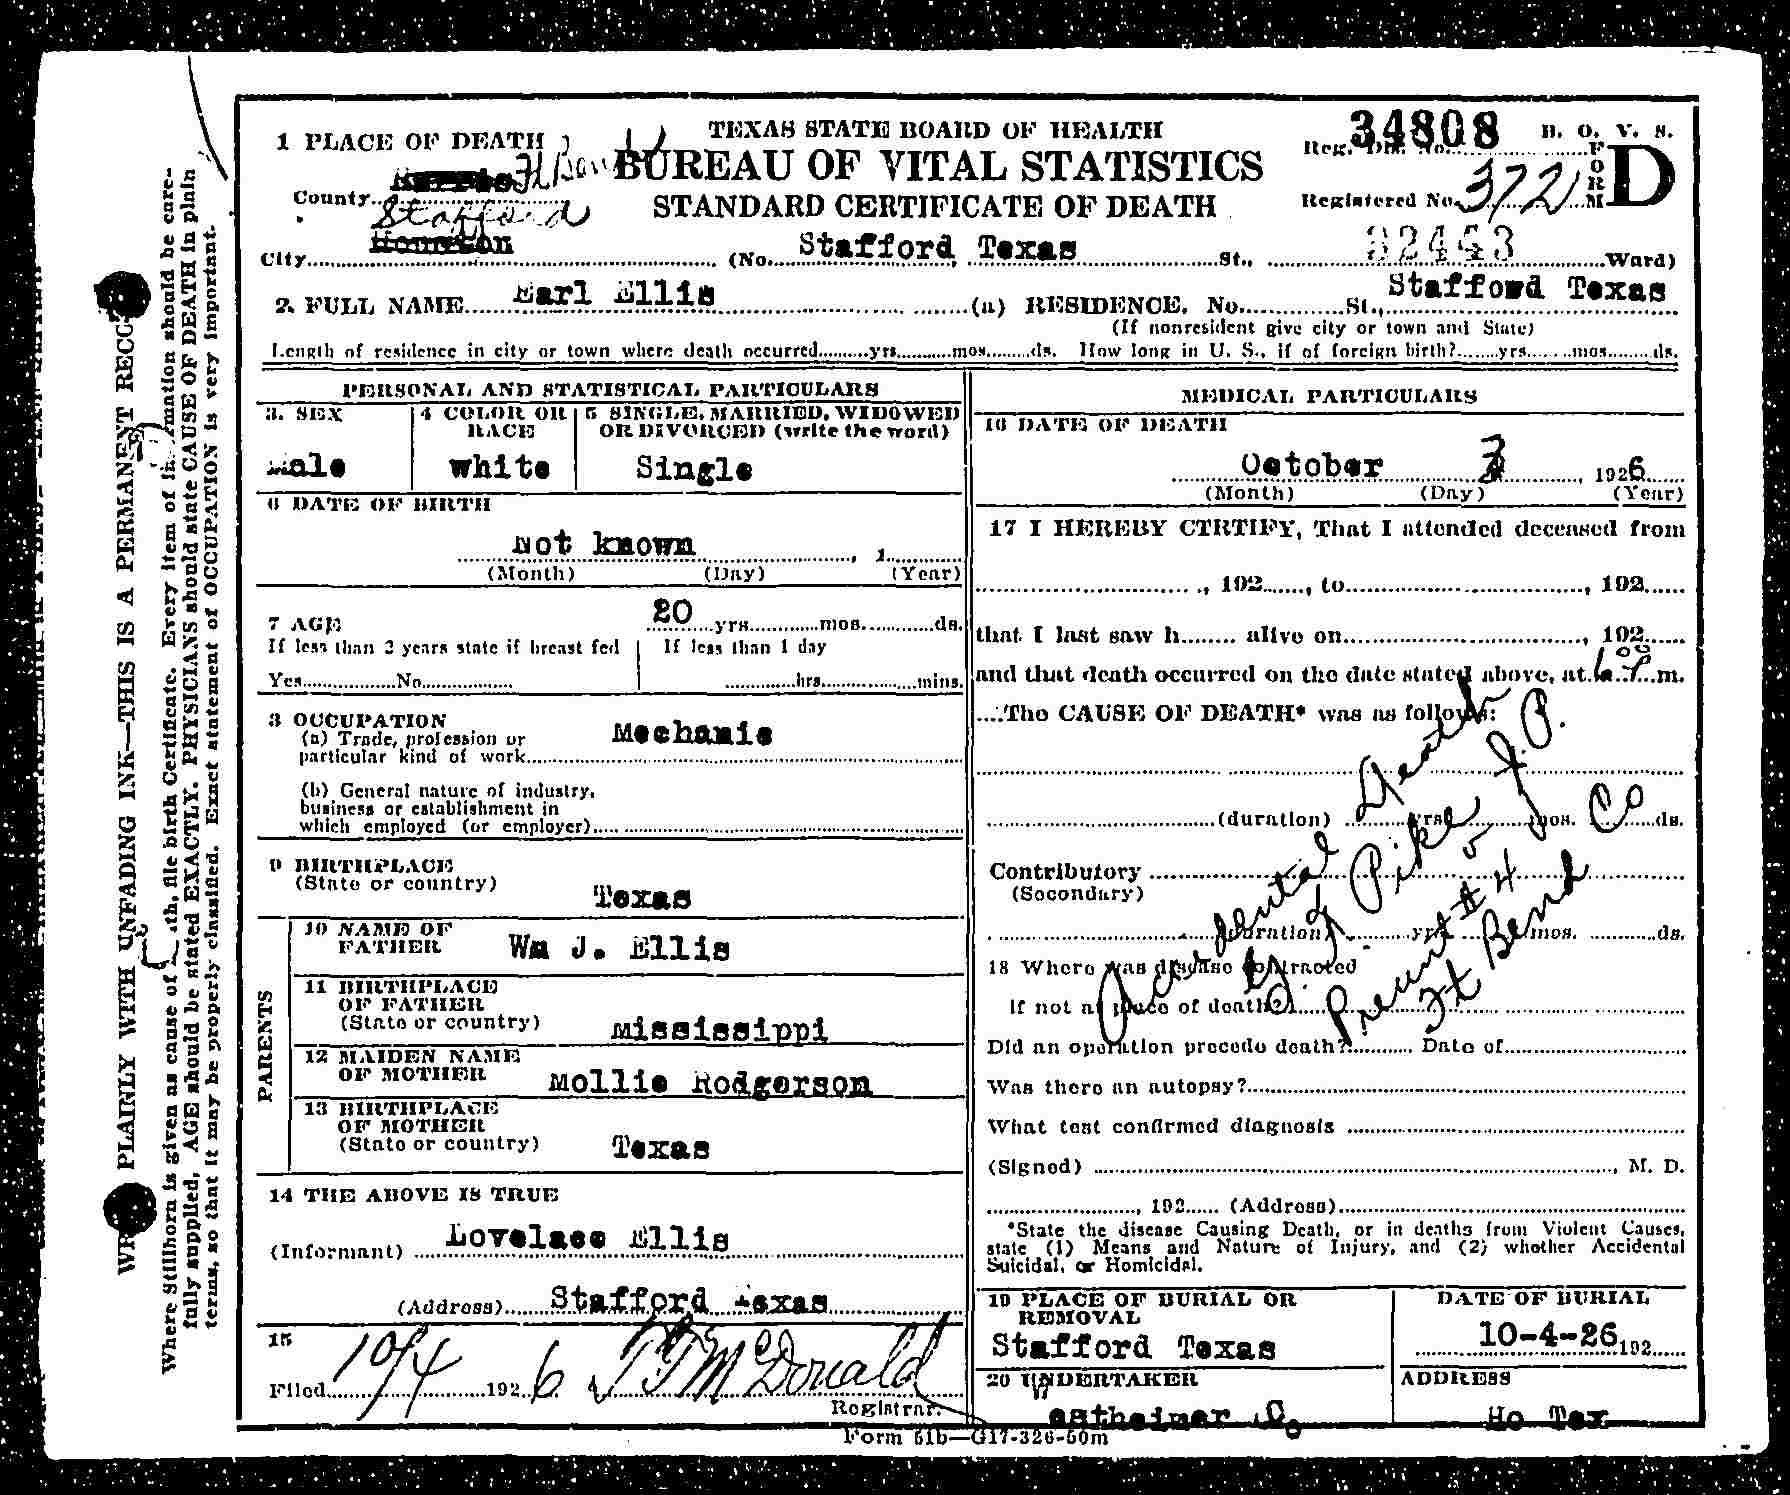 TEXAS STATE BOARD OF HEALTH
BUREAU OF VITAL STATISTICS
STANDARD CERTIFICATE OF DEATH
34808 B. O. V. S.
Reg. Dis. No.
FORM D
Registered No. 3721
1 PLACE OF DEATH
County Harris Ft Bend
Stafford
City Houston (No. Stafford, Texas St., 32443 Ward)
2. FULL NAME Earl Ellis (a) RESIDENCE. No. St., Stafford Texas
(If nonresident give city or town and State)
Length of residence in city or town where death occurred yrs mos ds. How long in U. S., if of foreign birth? yrs mos ds.
PERSONAL AND STATISTICAL PARTICULARS
3. SEX
Male
4 COLOR OR RACE
White
5 SINGLE, MARRIED, WIDOWED
OR DIVORCED (write the word)
Single
6 DATE OF BIRTH
Not known, 1
(Month) (Day) (Year)
7 AGE 20 yrs mos ds.
If less than 2 years state if breast fed
Yes No
If less than 1 day
hrs mins.
8 OCCUPATION
(a) Trade, profession or
particular kind of work Mechanic
(b) General nature of industry,
business or establishment in
which employed (or employer)
9 BIRTHPLACE
(State or country) Texas
PARENTS
10 NAME OF
FATHER Wm J. Ellis
11 BIRTHPLACE
OF FATHER
(State or country) Mississippi
12 MAIDEN NAME
OF MOTHER Mollie Rodgerson
13 BIRTHPLACE
OF MOTHER
(State or country) Texas
14 THE ABOVE IS TRUE
(Informant) Lovelace Ellis
(Address) Stafford Texas
15
Filed 10/4 1926 McDonald
Registrar.
MEDICAL PARTICULARS
16 DATE OF DEATH
October 3, 1926
(Month) (Day) (Year)
17 I HEREBY CTRTIFY, That I attended deceased from
, 192 , to , 192
that I last saw h alive on , 192
and that death occurred on the date stated above, at 6 00 P m.
The CAUSE OF DEATH* was as follows:
Accidental Death
Pike J.P.
Precinct #4
Ft Bend Co
(duration) yrs mos. ds.
Contributory
(Secondary)
(duration) yrs mos. ds.
18 Where was disease contracted
if not at place of death?
Did an operation precede death? Date of
Was there an autopsy?
What test confirmed diagnosis
(Signed) , M. D.
, 192 (Address)
*State the disease Causing Death, or in deaths from Violent Causes,
state (1) Means and Nature of Injury, and (2) whether Accidental
Suicidal, or Homicidal.
19 PLACE OF BURIAL OR
REMOVAL
Stafford Texas
DATE OF BURIAL
10-4-26 192
20 UNDERTAKER
Westheimer Co
ADDRESS
Ho Tex
Form 51b—G17-326-50m
PLAINLY WITH UNFADING INK—THIS IS A PERMANENT RECO
Where Stillborn is given as cause of death, file birth Certificate. Every item of information should be care-
fully supplied, AGE should be stated EXACTLY. PHYSICIANS should state CAUSE OF DEATH in plain
terms, so that it may be properly classified. Exact statement of OCCUPATION is very important.